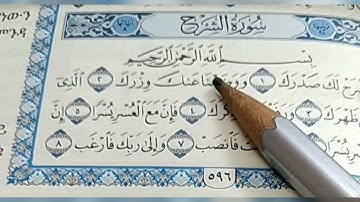 سُورَةُ الشَّرْحِ
بِسْمِ اللَّهِ الرَّحْمَٰنِ الرَّحِيمِ
لَكَ صَدْرَكَ ١ وَوَضَعْنَا عَنكَ وِزْرَكَ ٢ الَّذِي
ظَهْرَكَ ٣ ٤ فَإِنَّ مَعَ الْعُسْرِ يُسْرًا ٥ إِنَّ
فَانصَبْ ٧ وَإِلَىٰ رَبِّكَ فَارْغَب ٨
٥٩٦